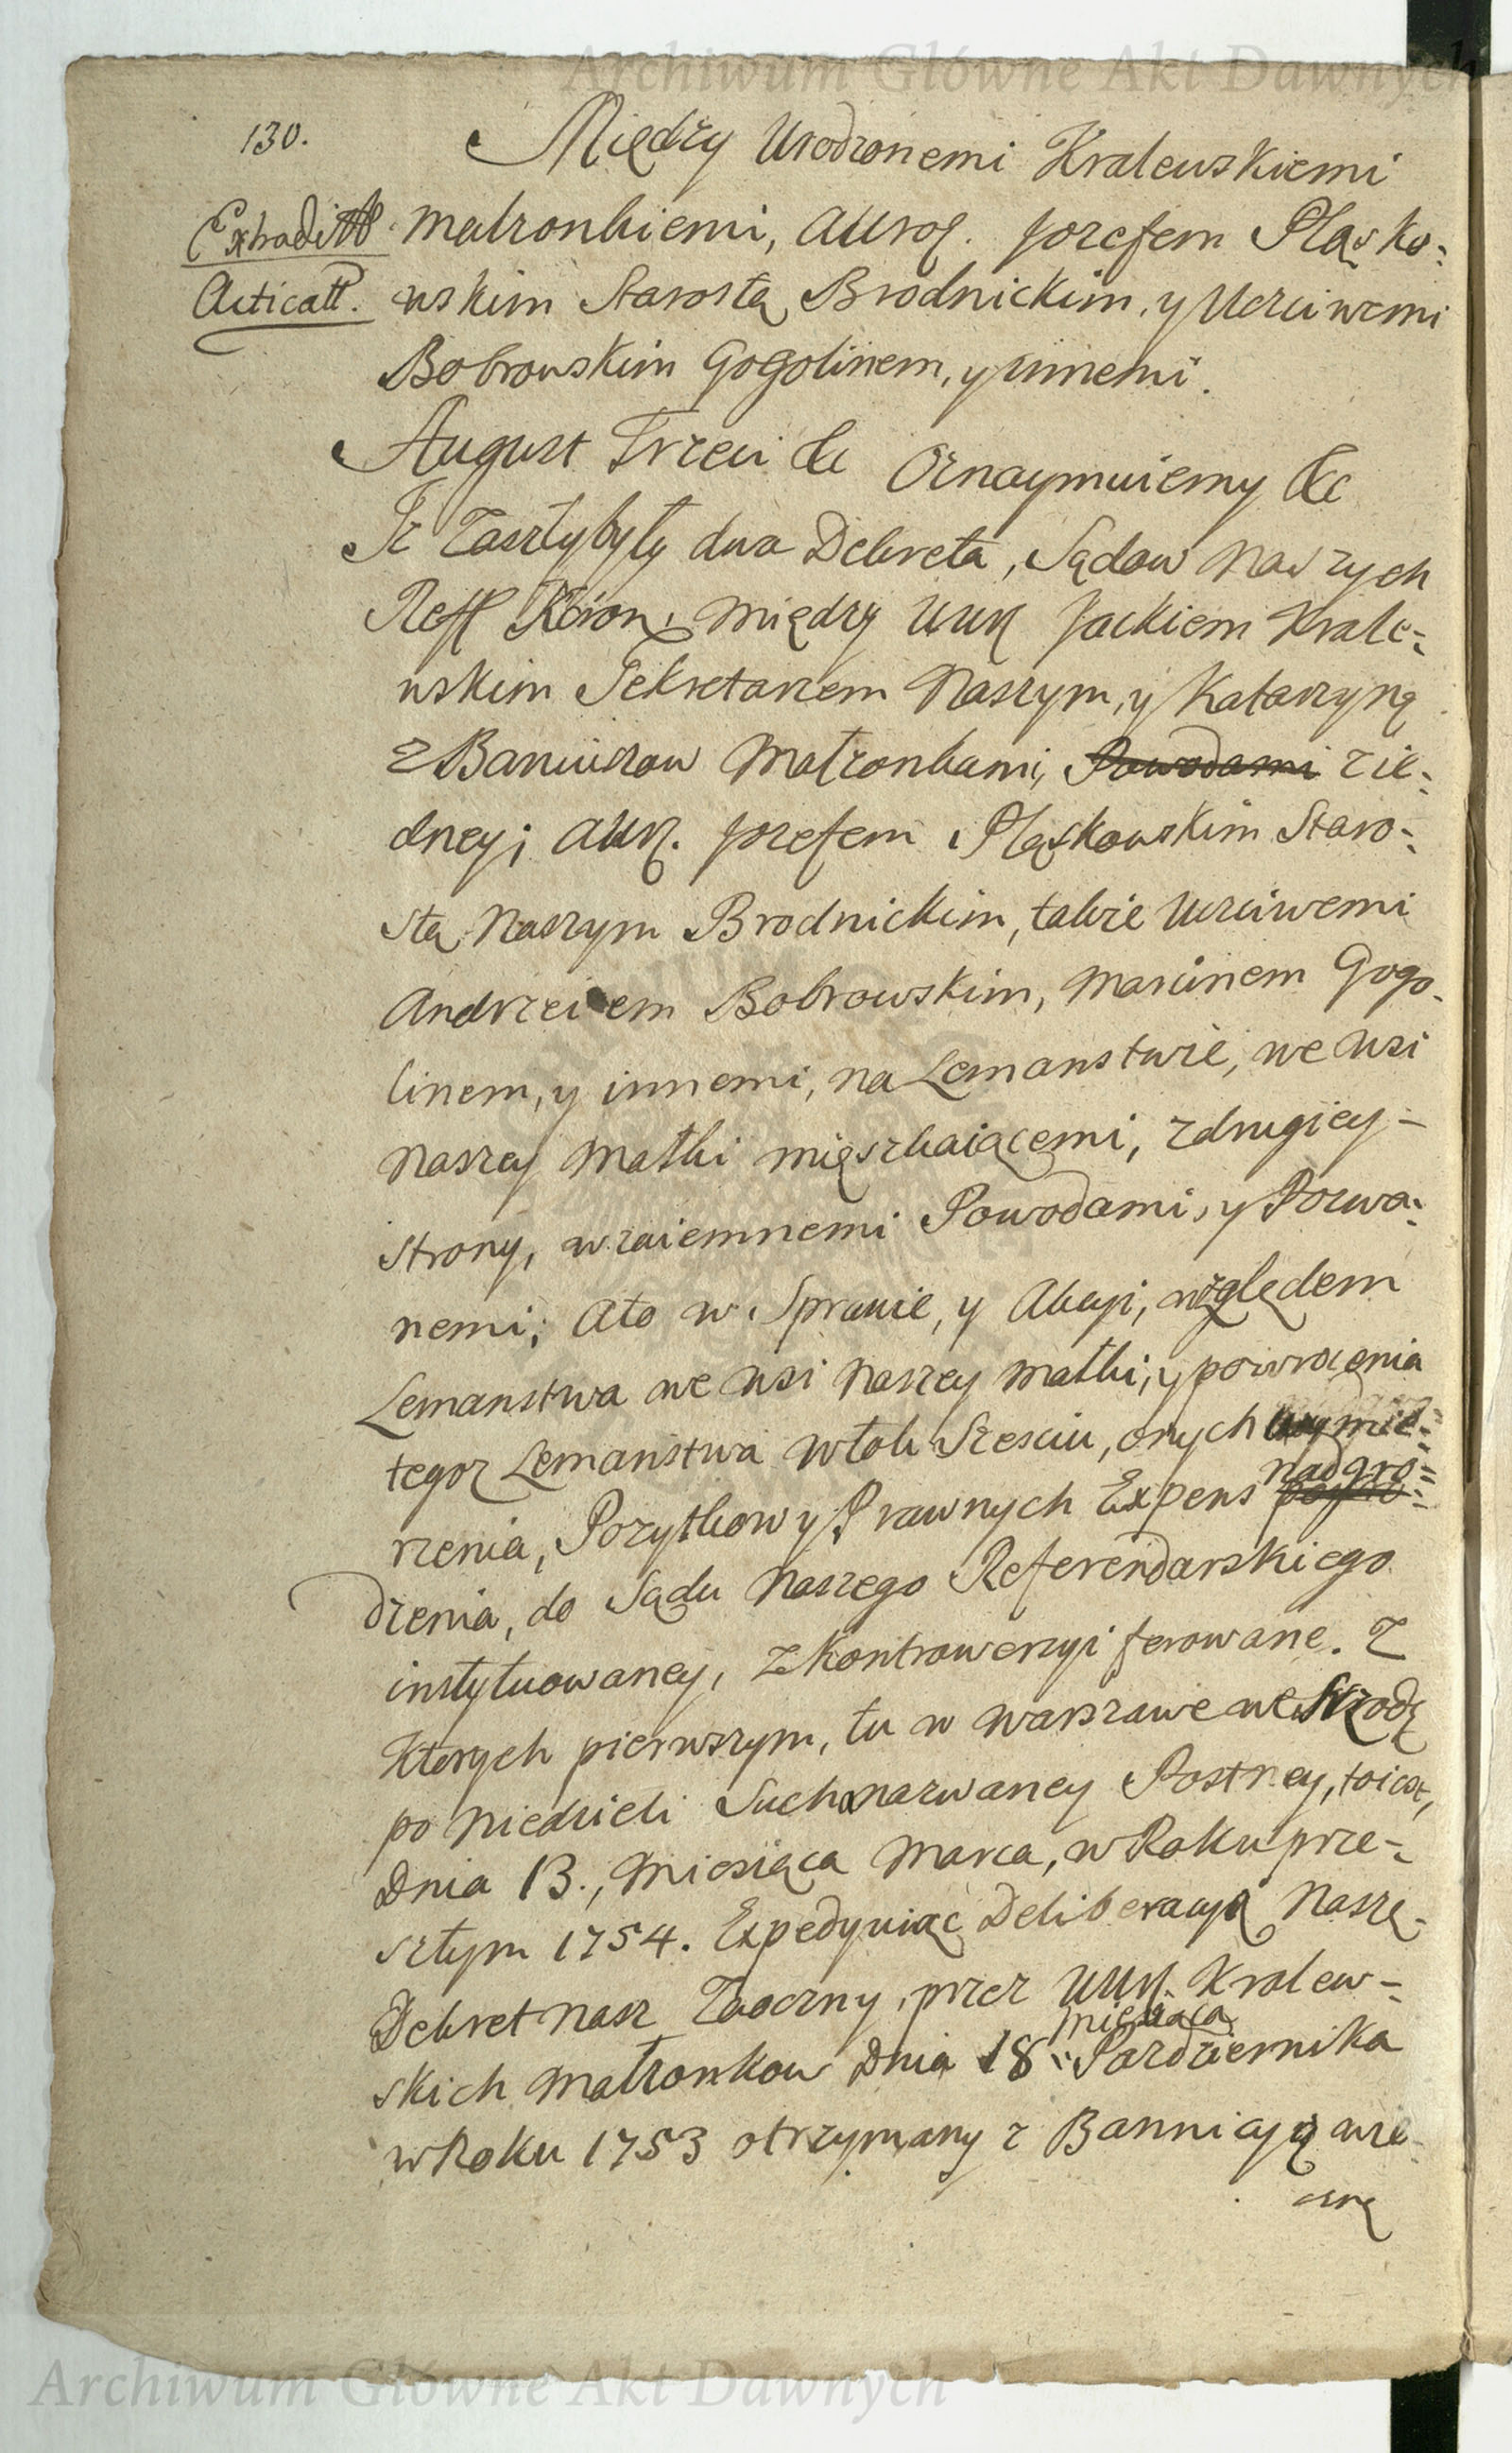 Archiwum Główne Akt Dawnych
130.
Między Urodzonemi Kralewskiemi
Extradit
Małzonkiemi, AUrog. Jozefem Pląsko-
Acticatt.
wskim Starostą Brodnickim, y Ucciwemi
Bobrowskim Gogolinem, y innemi.
August Trzeci &c Oznaymuiemy &c
Iż Zaszły były dwa Dekreta, Sądow Naszych
Reff Koron, między UUr Jackiem Krale-
wskim Sekretarzem Naszym, y Katarzyną
z Małzonkami, Powodami z ie-
dney; AUr. Jozefem Pląskowskim Staro-
stą Naszym Brodnickim, także Ucciwemi
Andrzeiem Bobrowskim, Marcinem Gogo-
linem, y innemi, na Lemanstwie, we Wsi
Naszey Małki mięszkaiącemi, z drugiey -
strony, wzaiemnemi Powodami, y Pozwa-
nemi; Ato w Sprawie, y Akcyi, względem
Lemanstwa we Wsi Naszey Małki, y powrocenia
tegoz Lemanstwa Włok Szesciu, onych wymie-
rzenia, Pozytkow y Prawnych Expens nadgro-
dzenia, do Sądu Naszego Referendarskiego
instytuowaney, z kontrowersyi ferowane. Z
Ktorych pierwszym, tu w Warszawie we Srzodę
po Niedzieli Suchanazwaney Postney, toiest,
Dnia 13., Miesiąca Marca, w Roku prze-
szłym 1754. Expedyuiąc Deliberacyą Naszę
Dekret Nasz Zaoczny, przez UUr. Kralew-
skich Małzonkow Dnia 18. miesiąca Pazdziernika
w Roku 1753 otrzymany z Bannicyą wie-
czną
Archiwum Główne Akt Dawnych